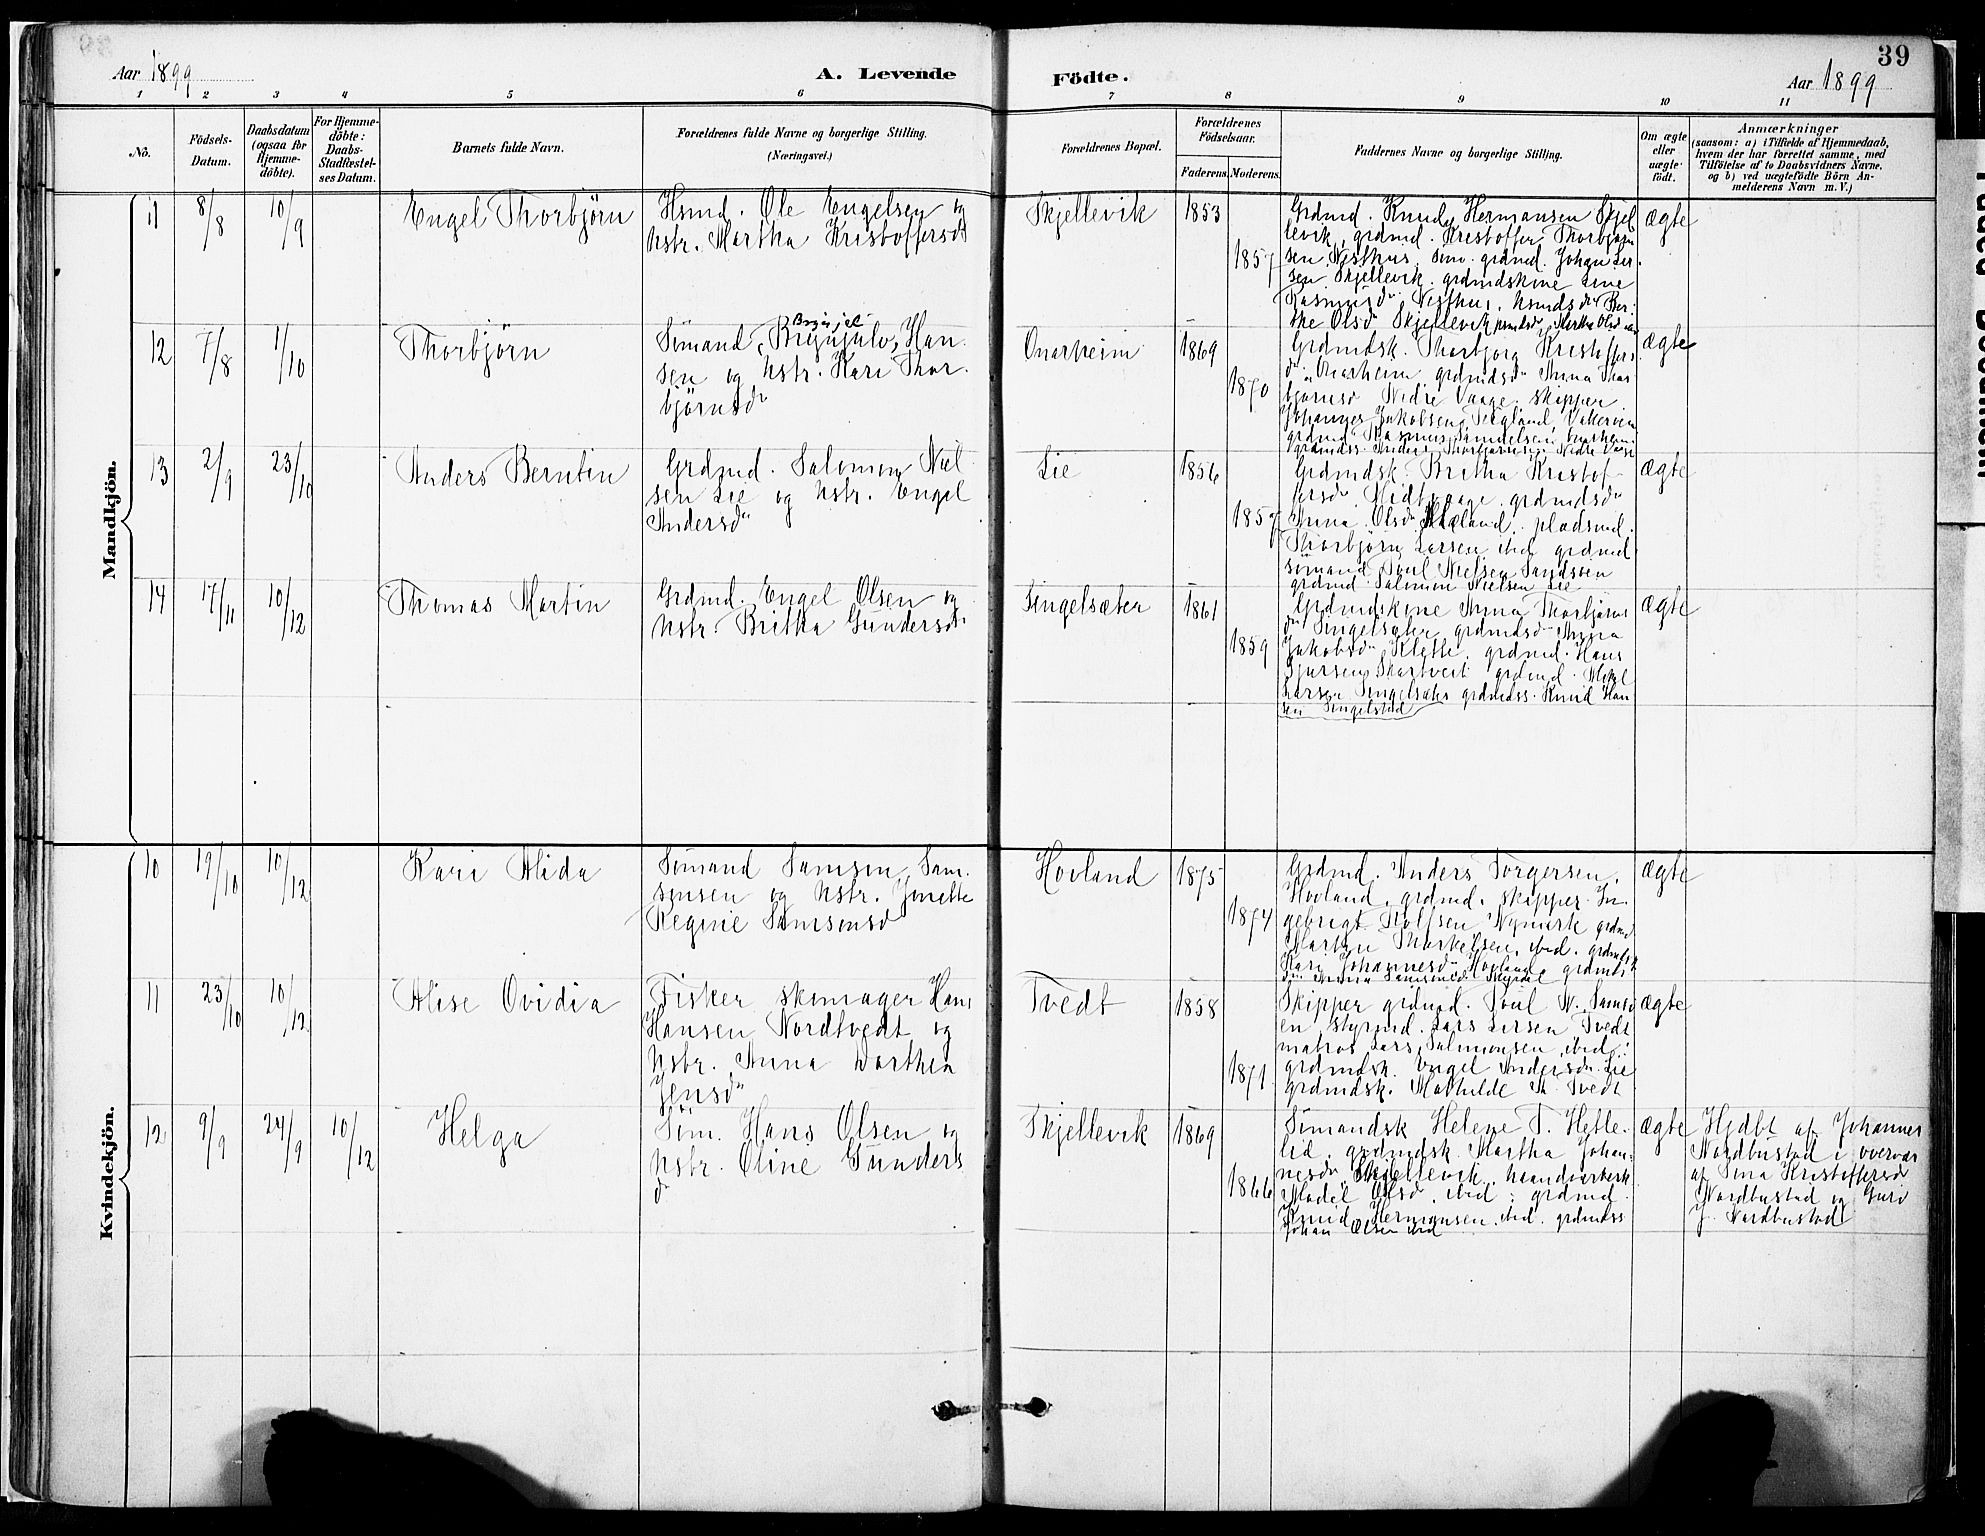 39
Aar 1899
A. Levende
Födte.
Aar 1899
1 2 3 4 5 6 7 8 9 10 11
No.
Födsels-
Datum.
Daabsdatum
(ogsaa for
Hjemme-
döbte).
For Hjemme-
döbte:
Daabs-
Stadfæstel-
ses Datum.
Barnets fulde Navn.
Forældrenes fulde Navne og borgerlige Stilling.
(Næringsvei.)
Forældrenes Bopæl.
Forældrenes
Födselsaar.
Faderens. Moderens.
Faddernes Navne og borgerlige Stilling.
Om ægte
eller
uægte
födt.
Anmærkninger
(saasom: a) i Tilfælde af Hjemmedaab,
hvem der har forrettet samme, med
Tilföielse af to Daabsvidners Navne,
og b) ved uægtefödte Börn An-
melderens Navn m. V.)
Mandkjön.
11 8/8 10/9 Engel Thorbjörn
Hsmd. Ole Engelsen og
hstr. Martha Kristoffersdr
Skjellevik 1853 1857
Grdmd. Knud Hermansen Skjel
levik, grdmd. Kristoffer Thorbjörn
sen Nesthus, grdmd. Johan Lar
sen Skjellevik. grdmdskone
Rasmusdr Nesthus, hsmdsdr Ber
the Olsdr Skjellevik Martha Olsdr
ægte
12 7/8 1/10 Thorbjörn
Sömand Han
sen og hstr. Kari Thor
björnsdr
Onarheim 1869 1870
Grdmdsk. Thorbjorg Kristoffers
dr Onarheim grdmdsdr Anna Thor
björnsd Nedre Vaage. skipper
Johannes Jakobsen
grdmd Rasmus Samuelsen
grdmdss. Anders Thorbjörnsen Nedre Vaage
ægte
13 2/9 23/10 Anders Berntin
Grdmd. Salomon Niel
sen Lie og hstr. Engel
Andersdr
Lie 1856 1857
Grdmdsk. Britha Kristof-
fersdr Midtvaage, grdmdsdr
Anna Olsdr pladsmd.
Thorbjörn Larsen ibid grdmd
sömand Poul Nielsen Sandven
grdmd. Salomon Nielsen Lie
ægte
14 17/11 10/12 Thomas Martin
Grdmd. Engel Olsen og
hstr. Britha Gundersdr
Singelsæter 1861 1859
Grdmdskone Anna Thorbjörns
dr Singelsæter grdmdsdr Anna
Jakobsdr Klette. grdmd. Hans
Skartveit grdmd.
Larsen Singelsæter grdmdss. Knud Han
sen Singelstad
ægte
Kvindekjön.
10 19/10 10/12 Kari Alida
Sömand Samson Sam
sonsen og hstr.
Regine Samsonsdr
Hovland 1875 1874
Grdmd. Anders Torgersen
Hovland, grdmd. skipper In
gebrigt Rolfsen Nymark grdmd
Thorkelsen, ibid. grdmdsk
Kari Johannesdr Hovland grdmds
dr Anna Samsonsdr
ægte
11 23/10 10/12 Alise Ovidia
Fisker skomager Hans
Hansen Nordtvedt og
hstr. Anna Dorthea
Jensdr
Tvedt 1858 1871
Skipper grdmd. Poul N. Sams
en styrmd. Lars Larsen Tvedt
matros Lars Salmonsen ibid.
grdmdsk. Engel Andersdr Lie
grdmdsk. Mathilde Tvedt
ægte
12 9/9 24/9 10/12 Helga
Söm. Hans Olsen og
hstr. Oline Gunders
dr
Skjellevik 1869 1866
Sömandsk Helene T. Hette-
lid, grdmdsk. Martha Johan-
nesdr Skjellevik, haandverkersk
Madel Olsdr, ibid; grdmd.
Knud Hermansen ibid. grdmdss
Johan Olsen ibid
ægte
Hjdbt af Johannes
Nordbustad i overvær
af Kristoffersdr
Nordbustad og Guri
J. Nordbustad